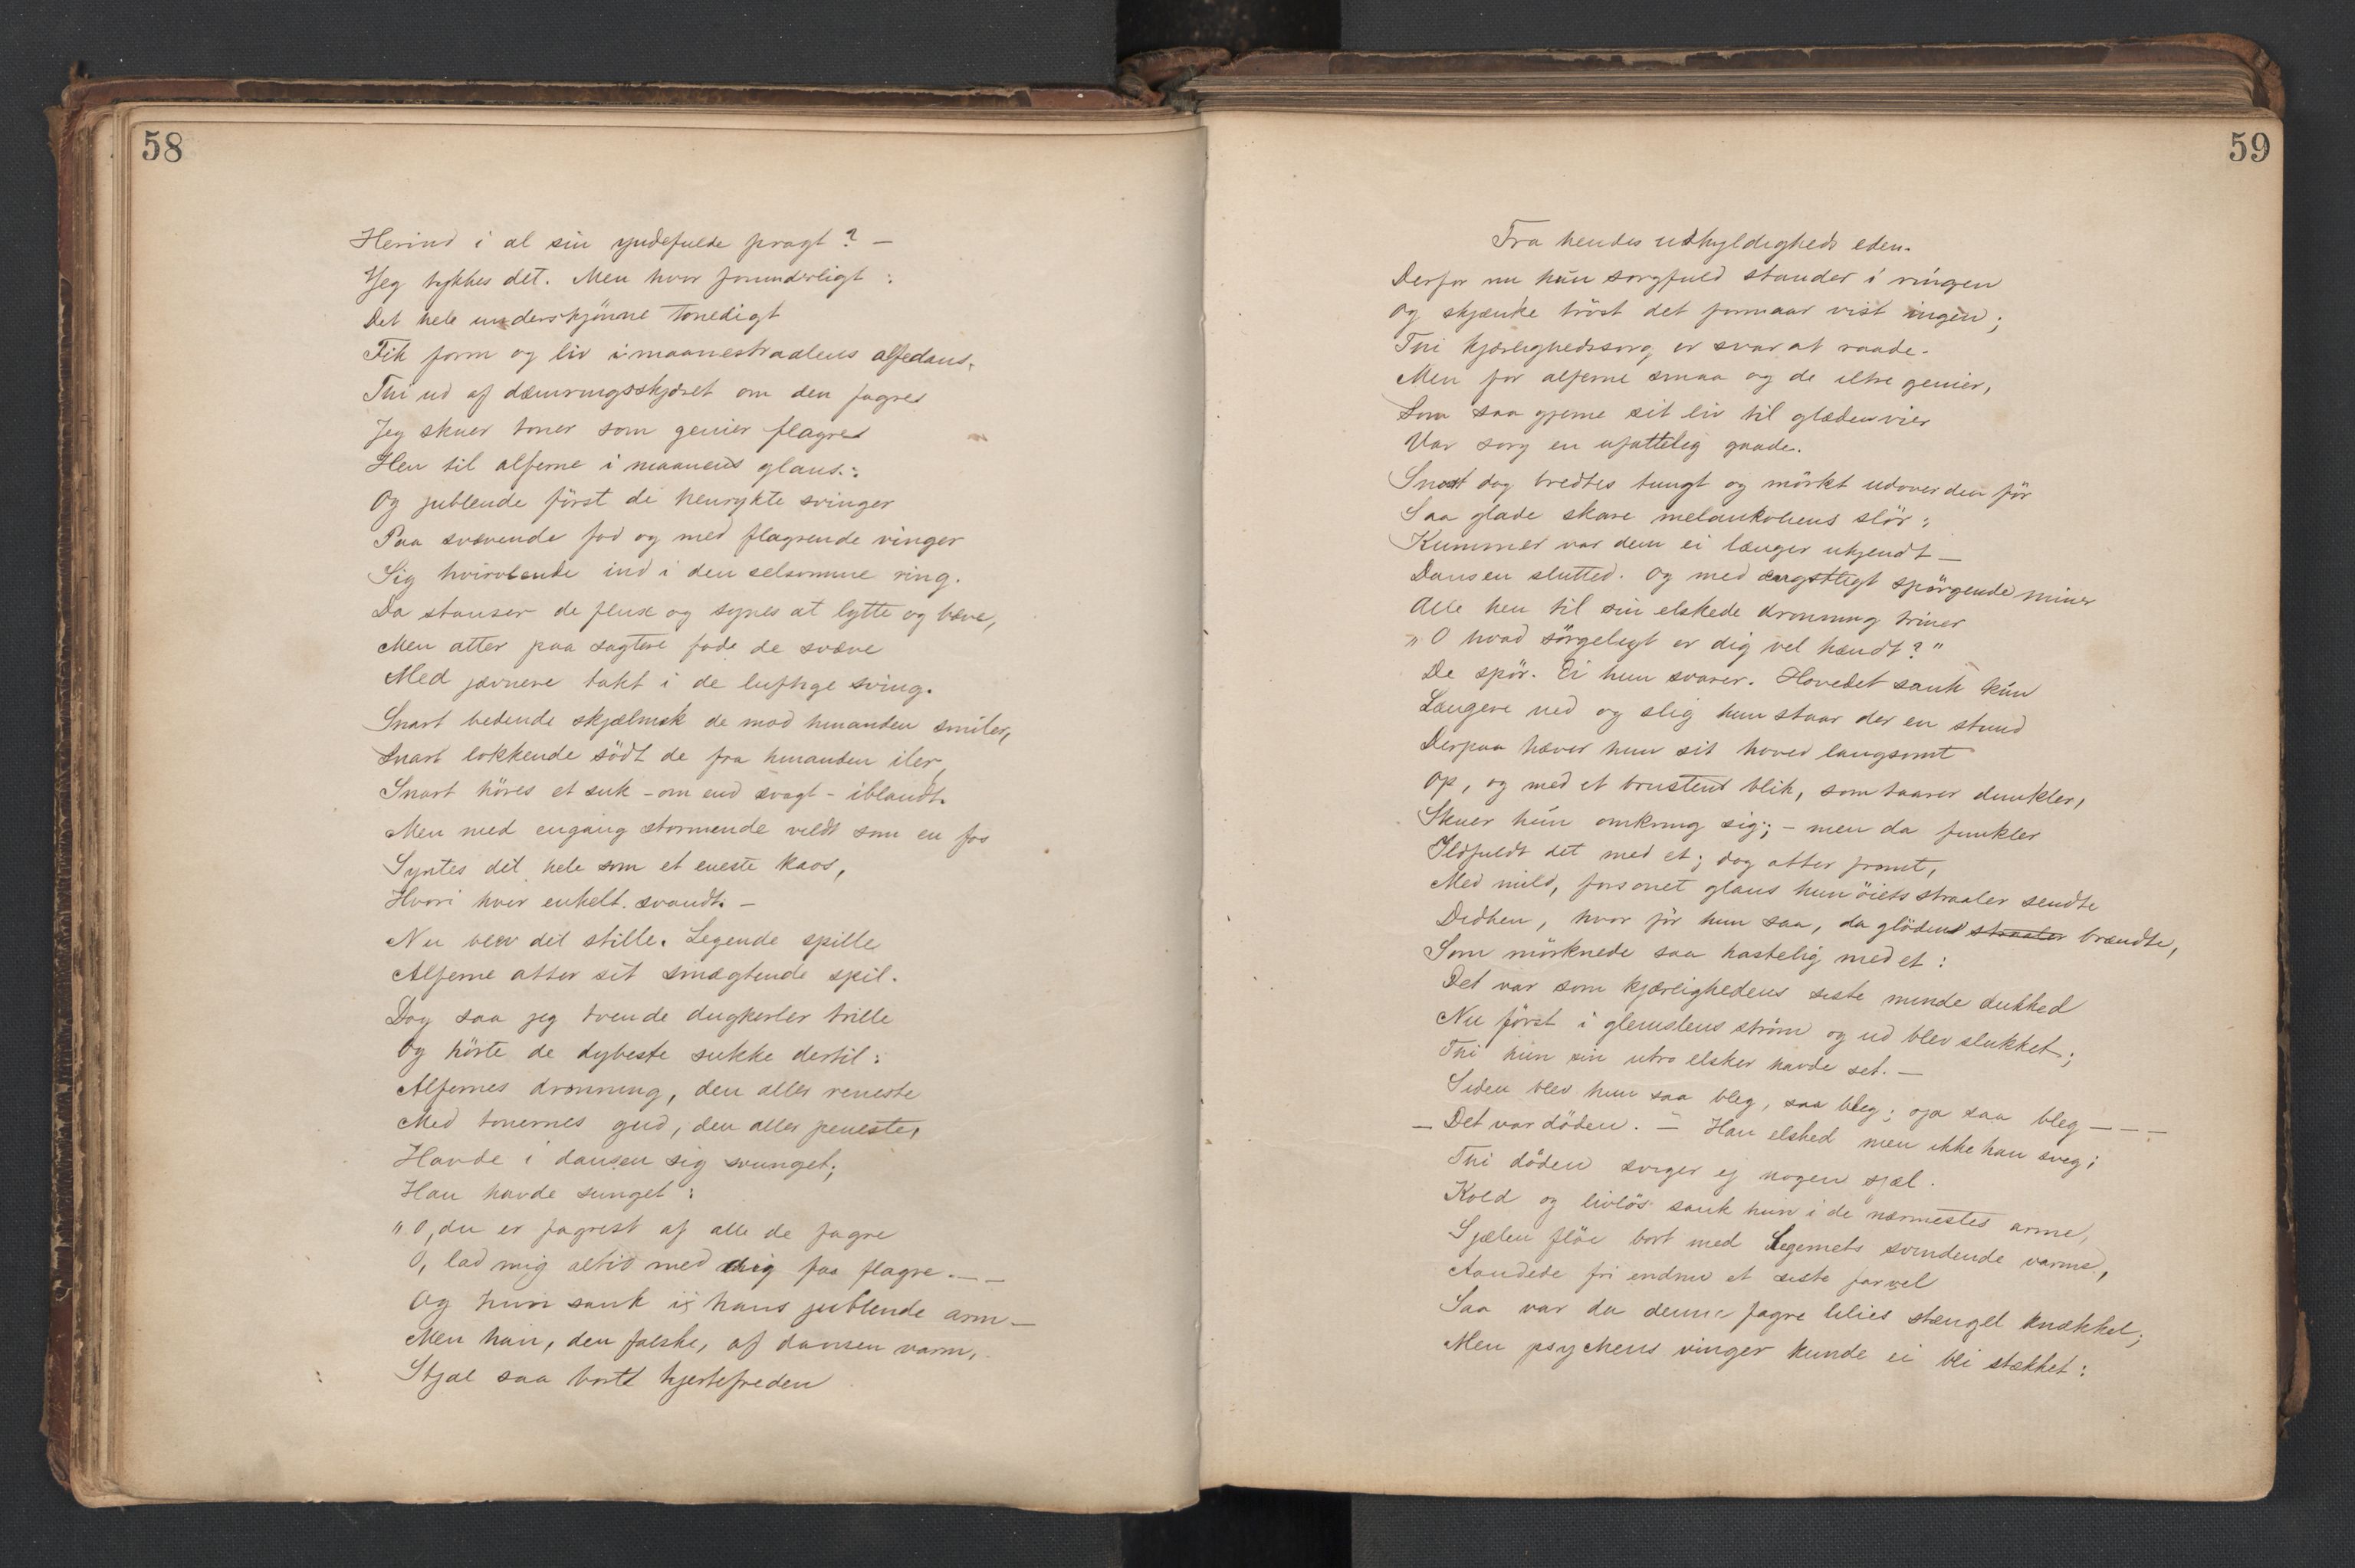 58
Herind i al sin yndefulde pragt? —
Jeg tykkes det. Men hvor forunderligt:
Det hele underskjönne Tonedigt
Fik form og liv i maanestraalens alfedans.
Thi ud af dæmringsskjæret om den fagres
Jeg skuer toner som genier flagres
Hen til alferne i maanens glans.:
Og jublende först de henrykte svinger
Paa svævende fod og med flagrende vinger
Sig hvirvlende ind i den selsomme ring.
Da stanser de flux og synes at lytte og bæve,
Men atter paa sagtere fode de svæve
Med jævnere takt i de luftige sving.
Snart bedende skjælmsk de mod hinanden smiler,
Snart lokkende södt de fra hinanden iler,
Snart höres et suk - om end svagt - iblandt.
Men med engang stormende vildt som en fos
Syntes det hele som et eneste kaos,
Hvori hver enkelt svandt. —
Nu blev det stille. Legende spille
Alferne atter sit smægtende spil.
Dog saa jeg tvende dugperler trille
Og hörte de dybeste sukke dertil:
Alfernes dronning, den aller reneste
Med tonernes gud, den aller peneste,
Havde i dansen sig svunget;
Han havde sunget:
"O, du er fagrest af alle de fagre
O, lad mig altid med dig faa flagre. — —
Og hun sank i hans jublende arm —
Men han, den falske, af dansen varm,
Stjal saa bort hjertefreden
59
Fra hendes uskyldigheds eden.
Derfor nu hun sorgfuld stander i ringen
Og skjænke tröst det formaar vist ingen;
Thi kjærlighedssorg er svar at raade.
Men for alferne smaa og de iltre genier,
Som saa gjerne sit liv til glæden vier
Var sorg en ufattelig gaade.
Snart dog bredtes tungt og mörkt udover den för
Saa glade skare melankoliens slör:
Kummer var dem ei længer ukjendt —
Dansen slutted. Og med ængstligt spörgende miner
Alle hen til sin elskede dronning triner
"O hvad sörgeligt er dig vel hændt?"
De spör. Ei hun svarer. Hovedet sank kun
Længere ned og slig hun staar der en stund
Derpaa hæver hun sit hoved langsomt
Op, og med et brustent blik, som taarer dunkler,
Skuer hun omkring sig; - men da funkler
Ildfuldt det med et; dog atter fromt,
Med mild, forsonet glans hun öiets straaler sendte
Didhen, hvor för hun saa, da glöden straaler brændte,
Som mörknede saa hastelig med et:
Det var som kjærlighedens siste minde dukked
Nu först i glemslens ström og ud blev slukket;
Thi hun sin utro elsker havde set. —
Siden blev hun saa bleg, saa bleg; oja saa bleg — — —
— Det var döden. — Han elsked men ikke han sveg;
Thi döden sviger ej nogen sjæl.
Kold og livlös sank hun i de nærmestes arme,
Sjælen flöi bort med Legemets svindende varme,
Aandede fri endnu et siste farvel
Saa var da denne fagre lilies stængel knækket;
Men psychens vinger kunde ei bli stækket: